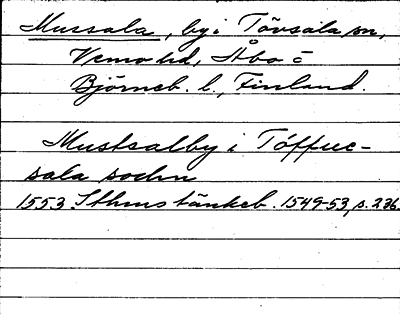 Mussala, by i Tövsala sn,
Vemo hd, Åbo o
Björneb. l., Finland.
Mustsalby i Töffue-
sala sochn
1553 Sthms tänkeb. 1549-53, s. 236